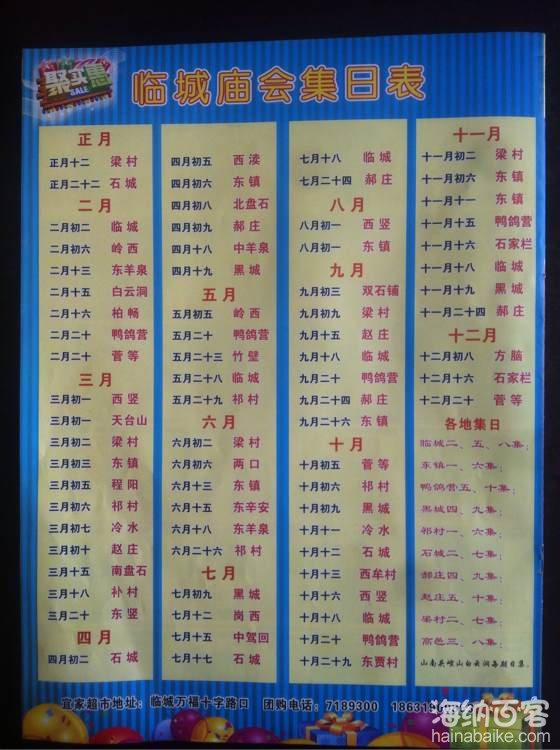 聚实惠
SALE
临城庙会集日表
正月
正月十二 梁村
正月二十二 石城
二月
二月初二 临城
二月初六 岭西
二月十三 东羊泉
二月十五 白云洞
二月十六 柏畅
二月二十 鸭鸽营
二月二十 菅等
三月
三月初一 西竖
三月初一 天台山
三月初二 梁村
三月初三 东镇
三月初五 程阳
三月初六 祁村
三月初七 冷水
三月初十 赵庄
三月十五 南盘石
三月十八 补村
三月二十 东竖
四月
四月初二 石城
四月初五 西渎
四月初六 东镇
四月初八 北盘石
四月初九 郝庄
四月十八 中羊泉
四月十九 黑城
五月
五月初五 岭西
五月二十 鸭鸽营
五月二十三 竹壁
五月二十八 临城
五月二十九 祁村
六月
六月初二 梁村
六月初六 两口
六月十三 东镇
六月十五 东辛安
六月十八 东羊泉
六月二十六 祁村
七月
七月初九 黑城
七月十二 岗西
七月十五 中驾回
七月十七 石城
七月十八 临城
七月二十四 郝庄
八月
八月初一 西竖
八月初一 东镇
九月
九月初三 双石铺
九月初九 梁村
九月十五 赵庄
九月十八 临城
九月二十 鸭鸽营
九月二十四 郝庄
九月二十六 东镇
十月
十月初五 菅等
十月初六 祁村
十月初九 黑城
十月十一 冷水
十月十二 石城
十月十三 西牟村
十月十五 西竖
十月十八 临城
十月二十 鸭鸽营
十月二十九 东贾村
十一月
十一月初二 梁村
十一月初六 东镇
十一月十一 东镇
十一月十五 鸭鸽营
十一月十六 石家栏
十一月十八 临城
十一月十九 黑城
十一月二十四 郝庄
十二月
十二月初八 方脑
十二月十六 石家栏
十二月二十 菅等
各地集日
临城二、五、八集;
东镇一、六集;
鸭鸽营五、十集;
黑城四、九集;
祁村一、六集;
石城二、七集;
郝庄四、九集;
赵庄五、十集;
梁村二、七集;
高邑三、八集;
宜家超市地址: 临城万福十字路口 团购电话: 7189300
海纳百客
hainabaike.com